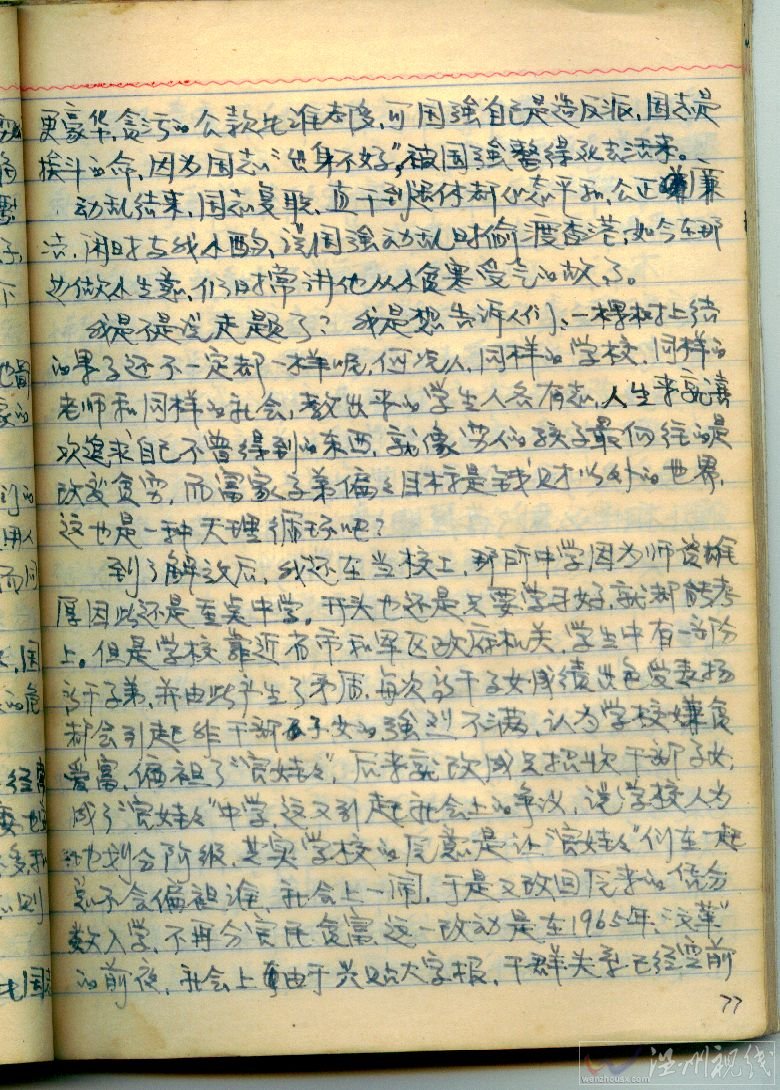 更豪华,贪污的公款比谁都多,可国强自己是造反派,国志是
挨斗的命,因为国志"出身不好",被国强整得死去活来。
动乱结束,国志复职,直干到退休都心态平和,公正廉
洁,闲时去钱水酌,说国强动乱时偷渡香港,如今在那
边做水生意,们日常讲他从小食寒受气的故了。
我是不是说走题了?我是想告诉人们:一棵树上结
的果子还不一定都一样呢,何况人,同样的学校,同样的
老师和同样的社会,教出来的学生人各有志,人生来就喜
欢追求自己不曾得到的东西,就像劳人的孩子最向往的是
改变贫穷,而富家子弟偏偏目标是钱财以外的世界,
这也是一种天理循环吧?
到了解放后,我还在当校工,那所中学因为师资雄
厚因此还是重点中学。开头也还是只要学习好,就都能考
上。但是学校靠近省市和军区政府机关,学生中有一部分
高干子弟,并由此产生了矛盾,每次高干子女成绩出色受表扬
都会引起非干部子女的强烈不满,认为学校嫌贫
爱富,偏袒了"官娃娃",后来就改成只招收干部子女,
成了"官娃娃"中学,这又引起社会上的争议,说学校人为
地划分阶级,其实学校的原意是让"官娃娃"们在一起
就不会偏袒谁,社会上一闹,于是又改回原来的凭分
数入学,不再分官民贫富,这一改动是在1965年,"文革"
的前夜,社会上由于兴贴大字报,干群关系已经空前
77
温州视线
wenzhousx.com